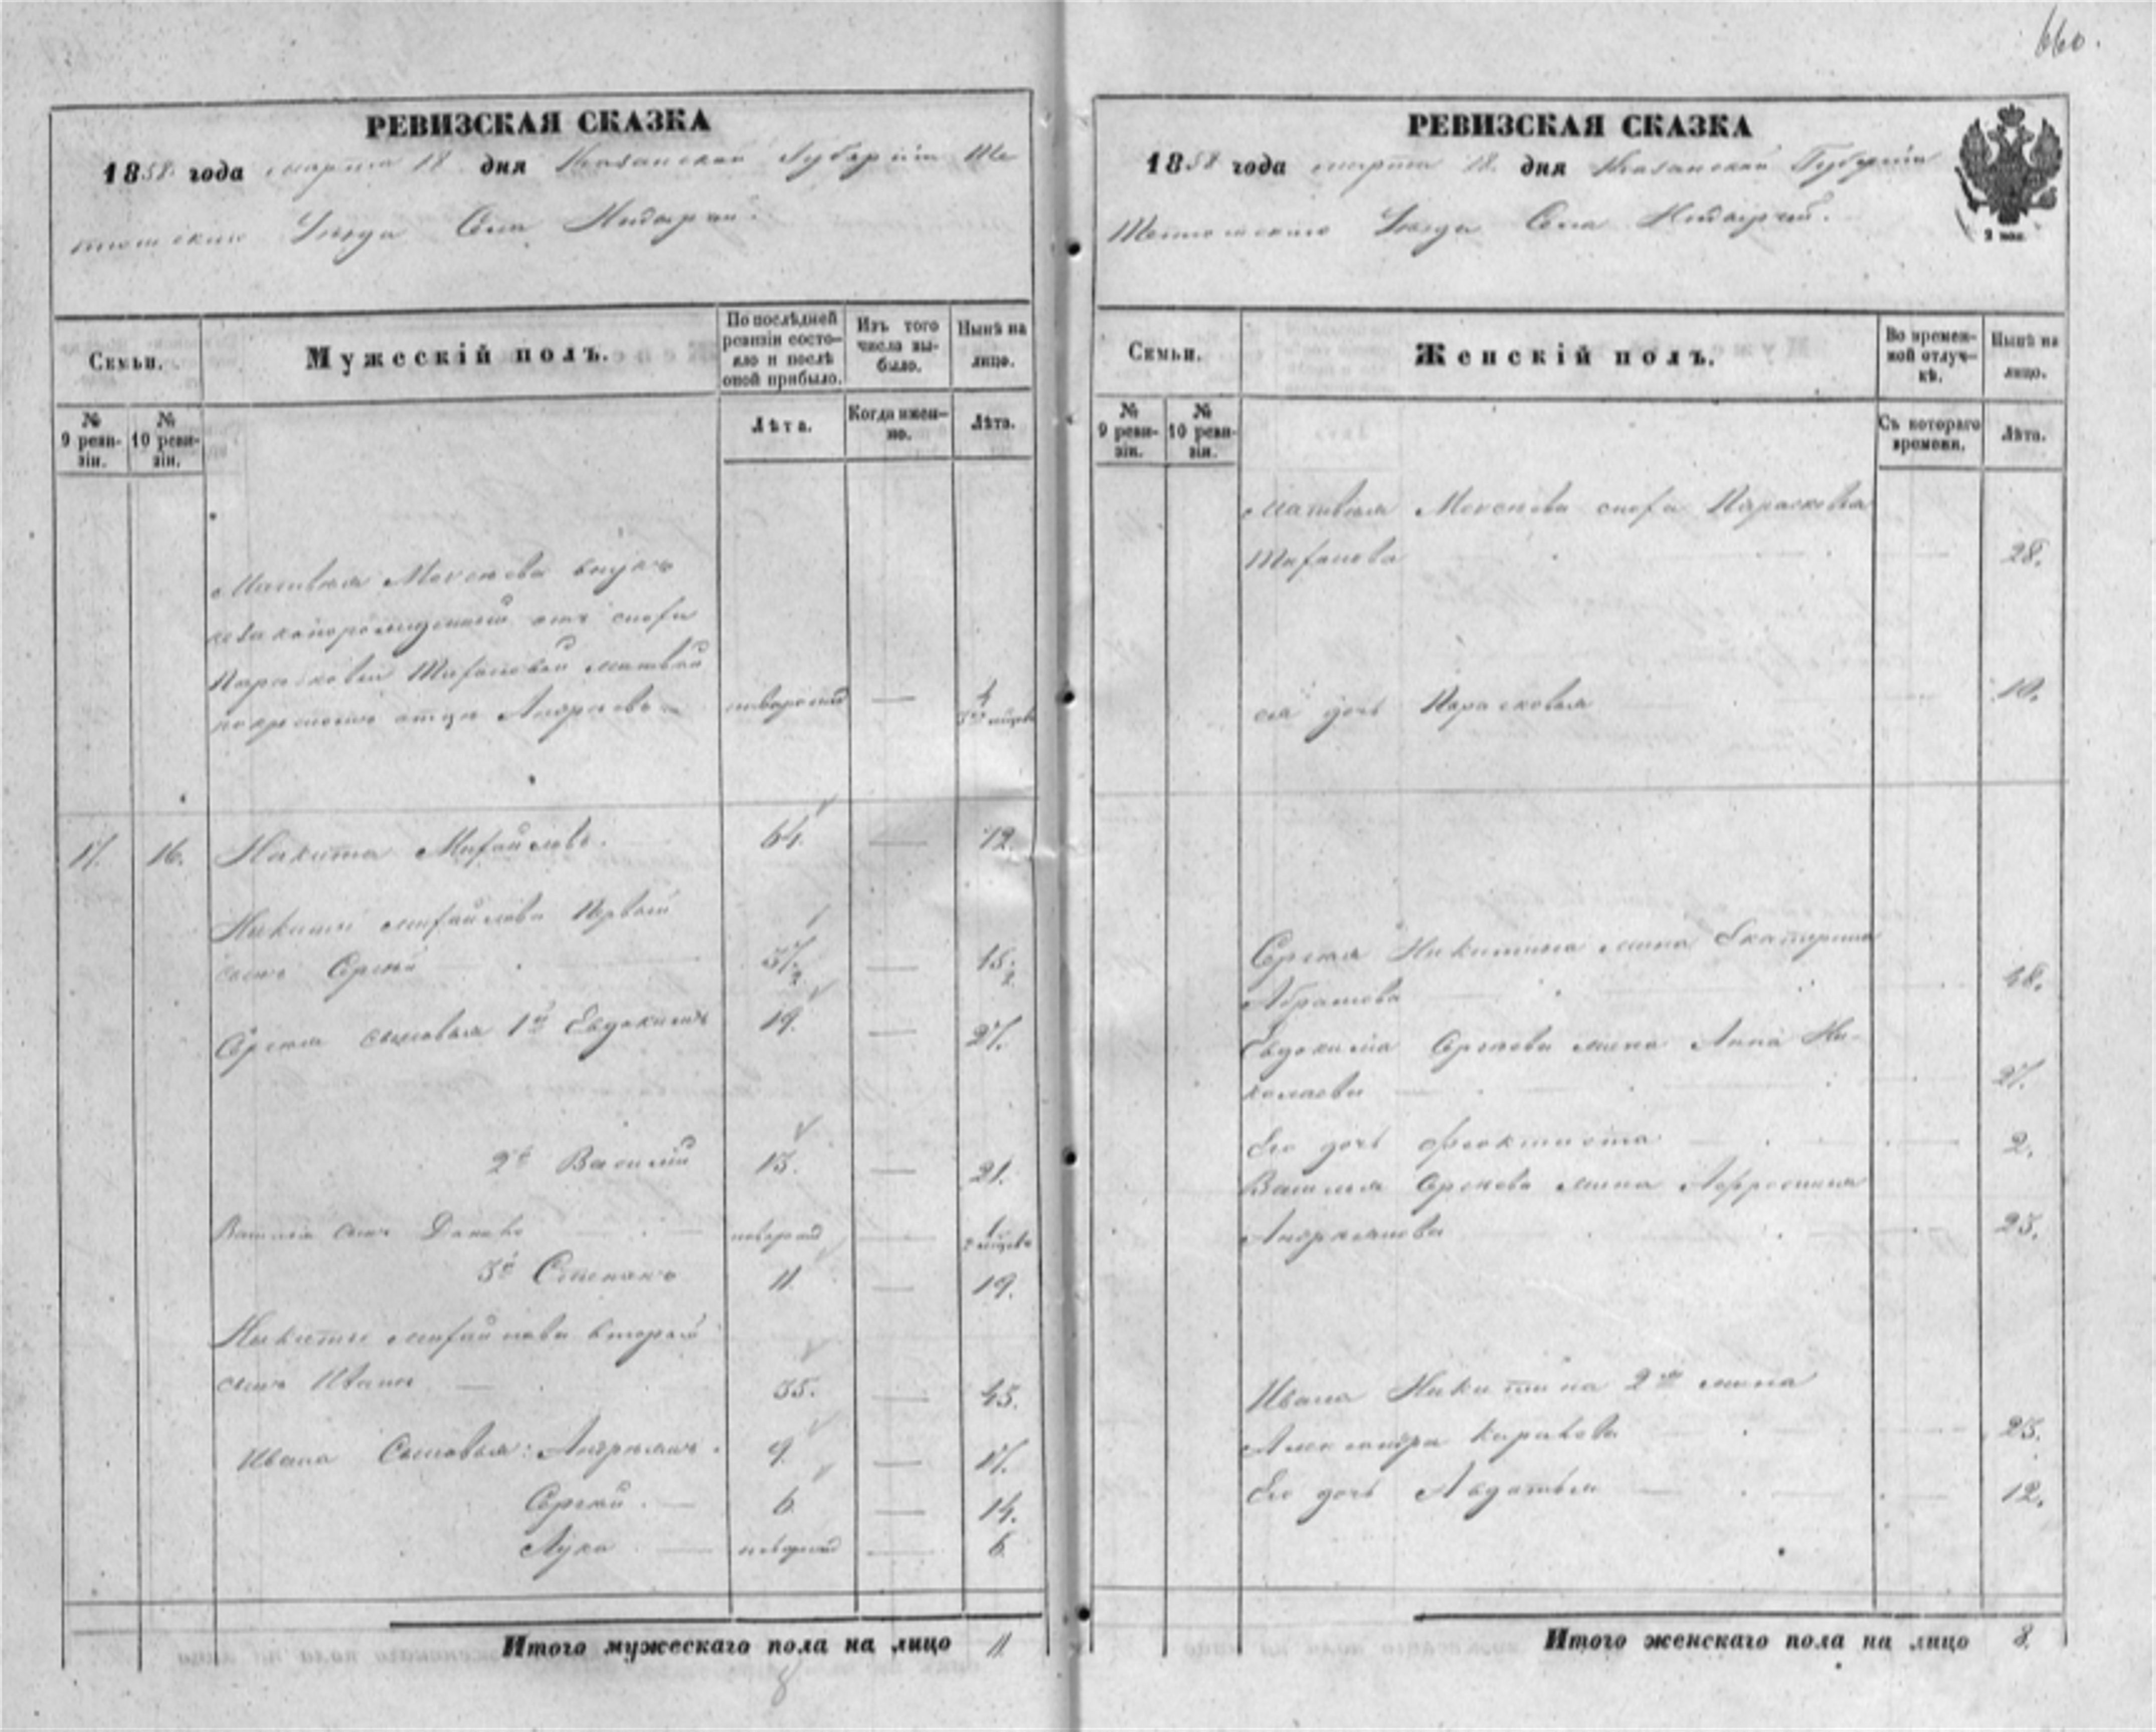 660.
РЕВИЗСКАЯ СКАЗКА
1858 года марта 18 дня Казанской Губерніи Те
тюшскаго Уѣзда Села
Семьи.
Мужескій полъ.
По послѣдней ревизіи состояло и послѣ оной прибыло.
Изъ того числа выбыло.
Нынѣ на лицо.
№ 9 ревизіи.
№ 10 ревизіи.
Лѣта.
Когда именно.
Лѣта.
Матвѣя внукъ
незаконорожденный отъ снохи
Парасковьи Матвѣй
по крестномъ отцѣ Андреевъ новорожд — 4
17. 16. Никита Михайловъ. 64. — 72.
Никиты Михайлова первый
сынъ Сергѣй 37. — 45.
Сергѣя сыновья 1й Евдокимъ 19. — 27.
2й Василій 13. — 21.
Василія сынъ новорожд —
3й Степанъ 11. — 19.
Никиты Михайлова второй
сынъ Иванъ — 35. — 43.
Ивана Сыновья: Андреянъ. 9. — 17.
Сергѣй. — 6. — 14.
Лука — новорожд — 6.
Итого мужескаго пола на лицо 11
8
РЕВИЗСКАЯ СКАЗКА
1858 года марта 18. дня Казанской Губерніи
Тетюшскаго Уѣзда Села
Семьи.
Женскій полъ.
Во временной отлучкѣ.
Нынѣ на лицо.
№ 9 ревизіи.
№ 10 ревизіи.
Съ котораго времени.
Лѣта.
Матвѣя сноха Парасковья
28.
ея дочь Парасковья 10.
Сергѣя Никитина жена Екатерина
Абрамова 48.
Евдокима Сергѣева жена Анна Ни-
колаева 27.
Его дочь Феоктиста 2.
Василья Сергѣева жена Афросинья
Андреянова 23.
Ивана Никитина 2я жена
Александра 25.
Его дочь Авдотья 12.
Итого женскаго пола на лицо 8.